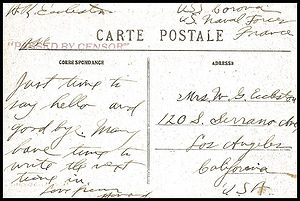 U.S. Naval Forces
France
"PASSED BY CENSOR"
CARTE POSTALE
CORRESPONDANCE
ADRESSE
Just time to
say hello and
good by. Many
have time to
write the next
time in
Love from
Mrs. W. G. Eccleston
120 S. Serrano Ave
Los Angeles
California
U.S.A.